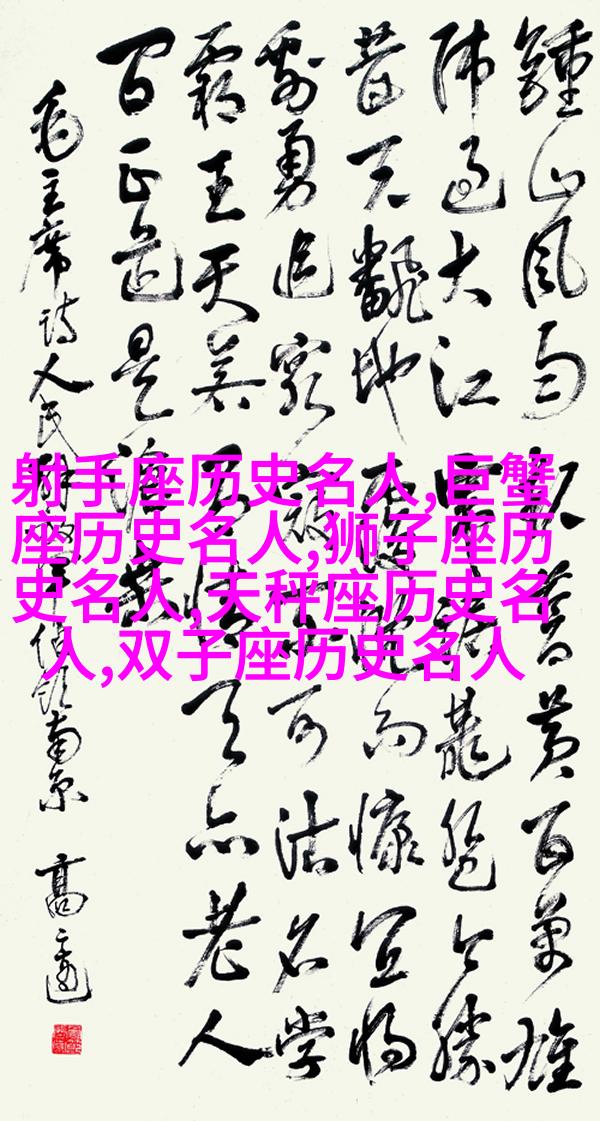 鍾山風雨起蒼黃百萬雄
師過大江虎踞龍盤今勝
昔天翻地覆慨而慷宜將
剩勇追窮寇不可沽名學
霸王天若有情天亦老人
間正道是滄桑
毛主席詩人民解放軍佔領南京 高
射手座历史名人,巨蟹
座历史名人,狮子座历
史名人,天秤座历史名
人,双子座历史名人